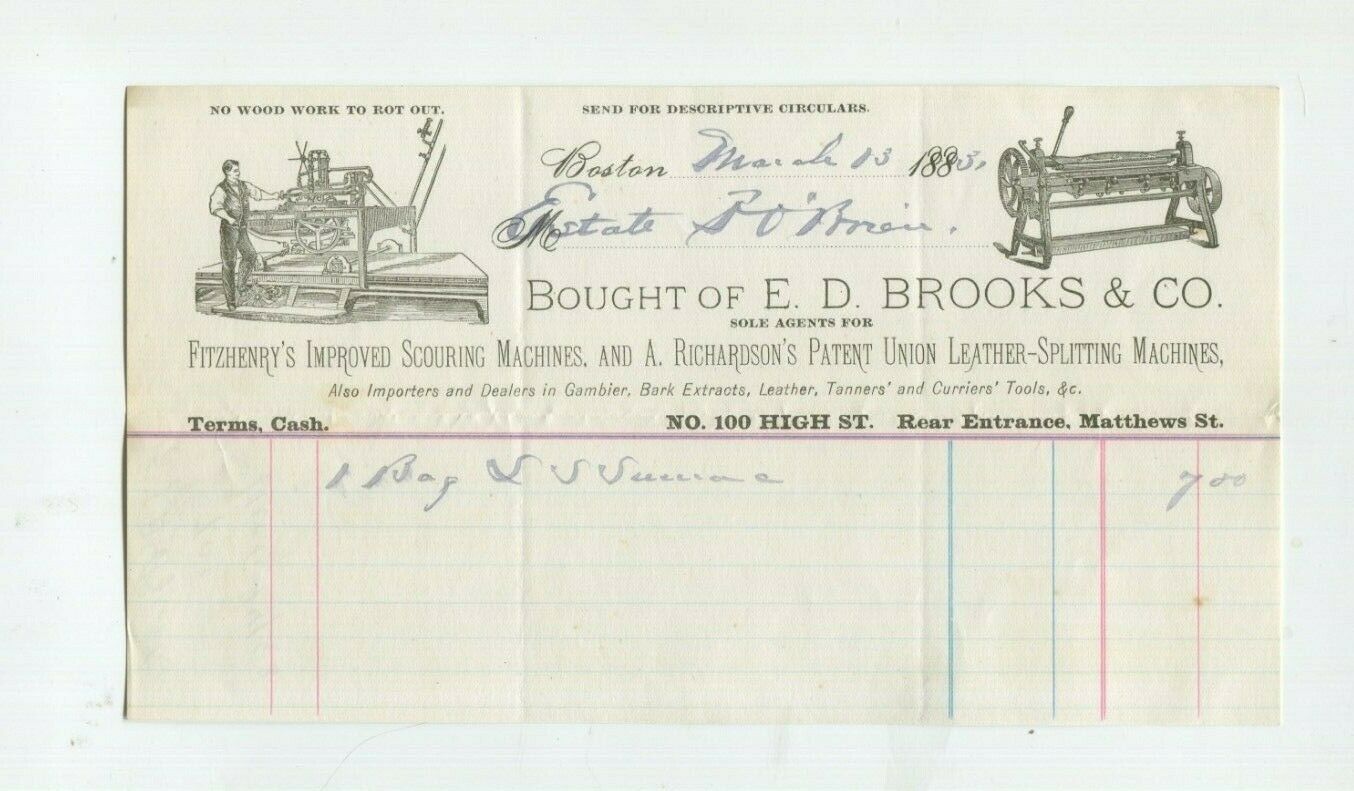 NO WOOD WORK TO ROT OUT.
SEND FOR DESCRIPTIVE CIRCULARS.
Boston March 13 1883.
M Estate O'Brien.
BOUGHT OF E. D. BROOKS & CO.
SOLE AGENTS FOR
FITZHENRY'S IMPROVED SCOURING MACHINES, AND A. RICHARDSON'S PATENT UNION LEATHER-SPLITTING MACHINES,
Also Importers and Dealers in Gambier, Bark Extracts, Leather, Tanners' and Curriers' Tools, &c.
Terms, Cash. NO. 100 HIGH ST. Rear Entrance, Matthews St.
1 Bag L S Sumac 7 00